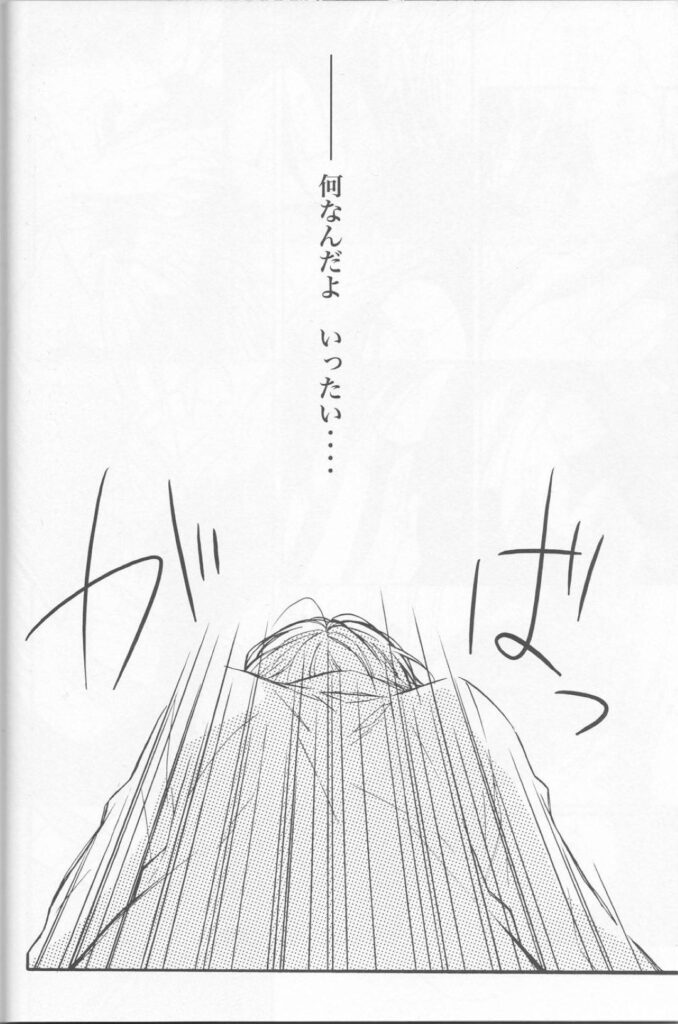 ──何なんだよ　いったい‥‥‥
がばっ